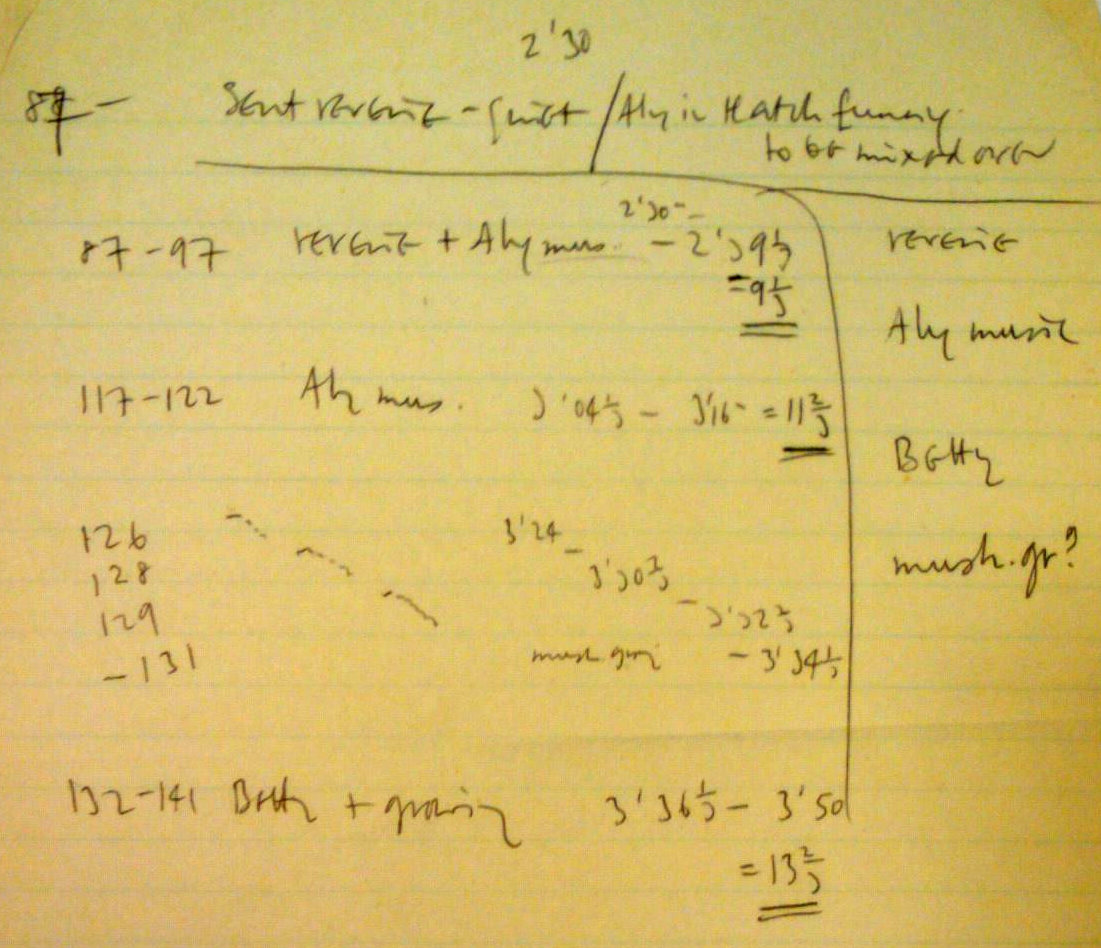 2'30
87 - Sent reverie - quiet / Aly in Hatch funny
to be mixed over
87-97 reverie + Aly mus. 2'30 - 2'39⅓
= 9⅓
117-122 Aly mus. 3'04⅓ - 3'16 = 11⅔
126 3'24
128 - 3'30⅔
129 - 3'32⅔
-131 mush. - 3'34⅓
132-141 Betty + growing 3'36⅓ - 3'50
= 13⅔
reverie
Aly music
Betty
mush. gr?